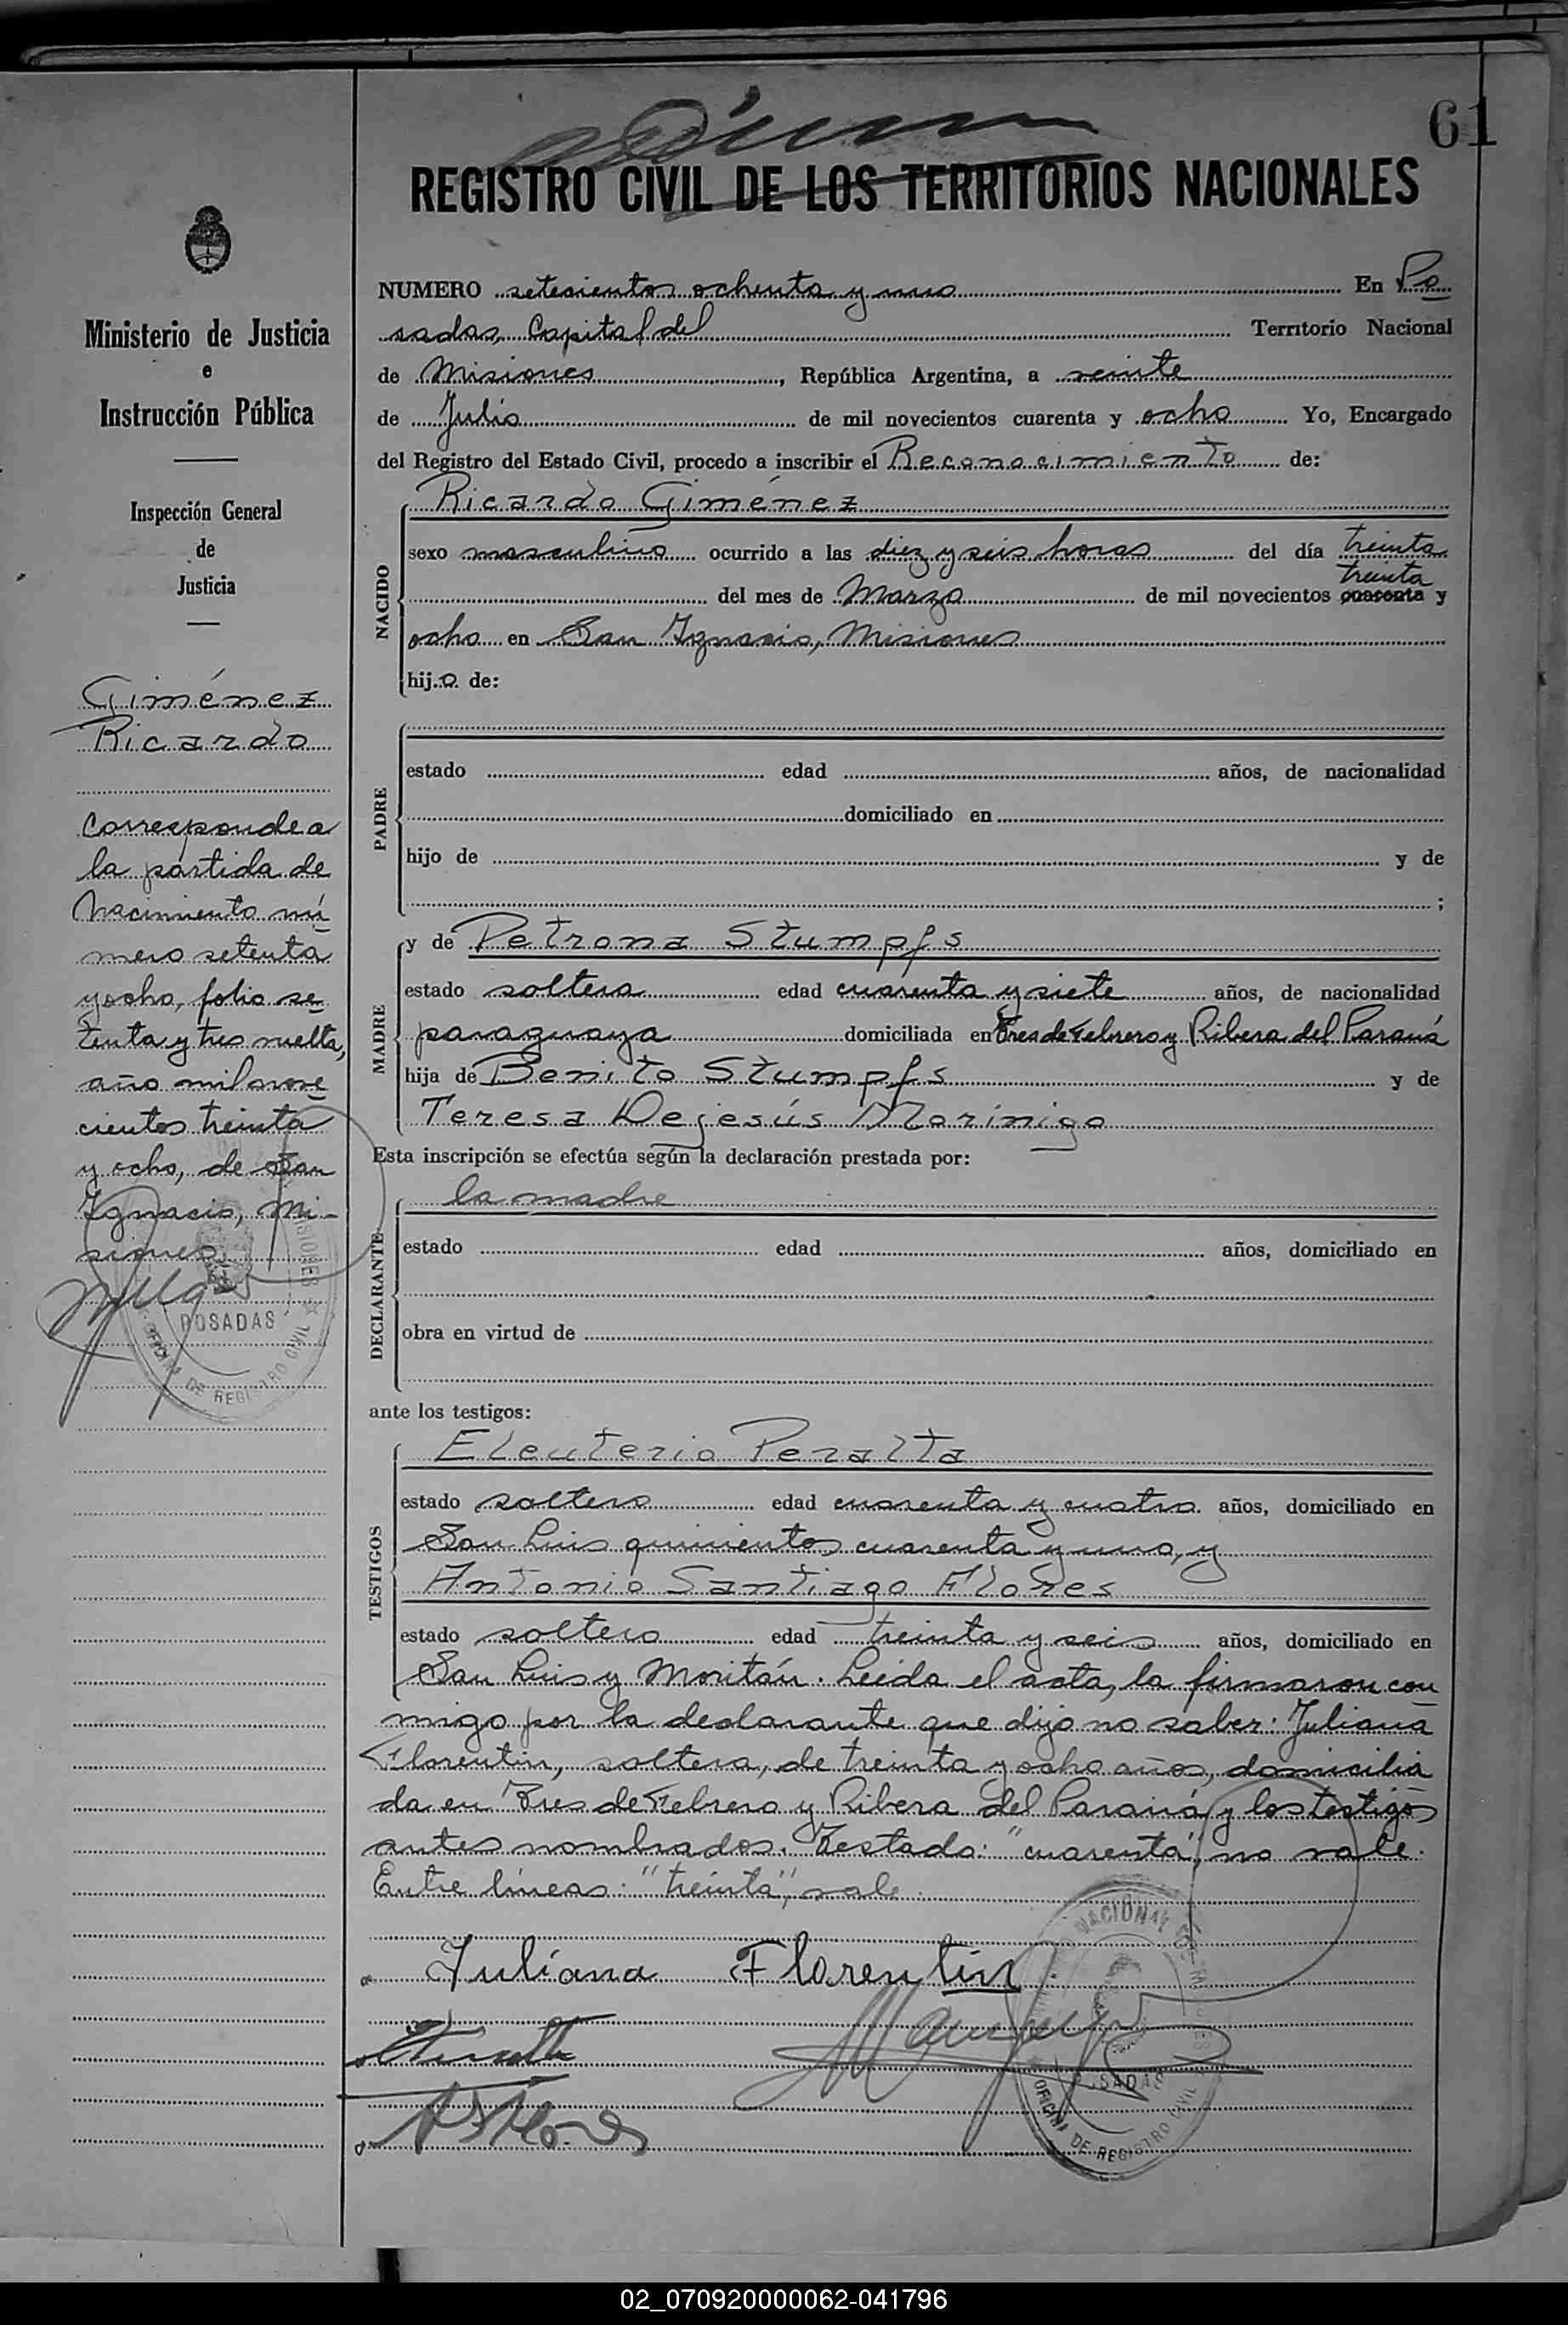 61
REGISTRO CIVIL DE LOS TERRITORIOS NACIONALES
Ministerio de Justicia
e
Instrucción Pública
Inspección General
de
Justicia
Giménez
Ricardo
Corresponde a
la partida de
Nacimiento nú
mero setenta
y ocho, folio se
tenta y tres vuelta,
año mil nove
cientos treinta
y ocho, de San
Ignacio, Mi-
siones.
POSADAS
OFICINA DE REGISTRO CIVIL
MISIONES
NUMERO setecientos ochenta y uno En Po
sadas, Capital del Territorio Nacional
de Misiones, República Argentina, a veinte
de Julio de mil novecientos cuarenta y ocho Yo, Encargado
del Registro del Estado Civil, procedo a inscribir el Reconocimiento de:
NACIDO
Ricardo Giménez
sexo masculino ocurrido a las diez y seis horas del día treinta
treinta
del mes de Marzo de mil novecientos cuarenta y
ocho en San Ignacio, Misiones
hijo de:
PADRE
estado edad años, de nacionalidad
domiciliado en
hijo de y de
;
MADRE
y de Petrona Stumpfs
estado soltera edad cuarenta y siete años, de nacionalidad
paraguaya domiciliada en Tres de Febrero y Ribera del Paraná
hija de Benito Stumpfs y de
Teresa Dejesús Morínigo
Esta inscripción se efectúa según la declaración prestada por:
DECLARANTE
la madre
estado edad años, domiciliado en
obra en virtud de
ante los testigos:
TESTIGOS
Eleuterio Peralta
estado soltero edad cuarenta y cuatro años, domiciliado en
San Luis quinientos cuarenta y uno, y
Antonio Santiago Flores
estado soltero edad treinta y seis años, domiciliado en
San Luis y Moritán. Leída el acta, la firmaron con
migo por la declarante que dijo no saber: Juliana
Florentin, soltera, de treinta y ocho años, domicilia
da en Tres de Febrero y Ribera del Paraná y los testigos
antes nombrados. Testado: "cuarenta", no vale.
Entre líneas: "treinta", vale.
Juliana Florentin
ASFlores
NACIONAL DE MISIONES
POSADAS
OFICINA DE REGISTRO CIVIL
02_070920000062-041796